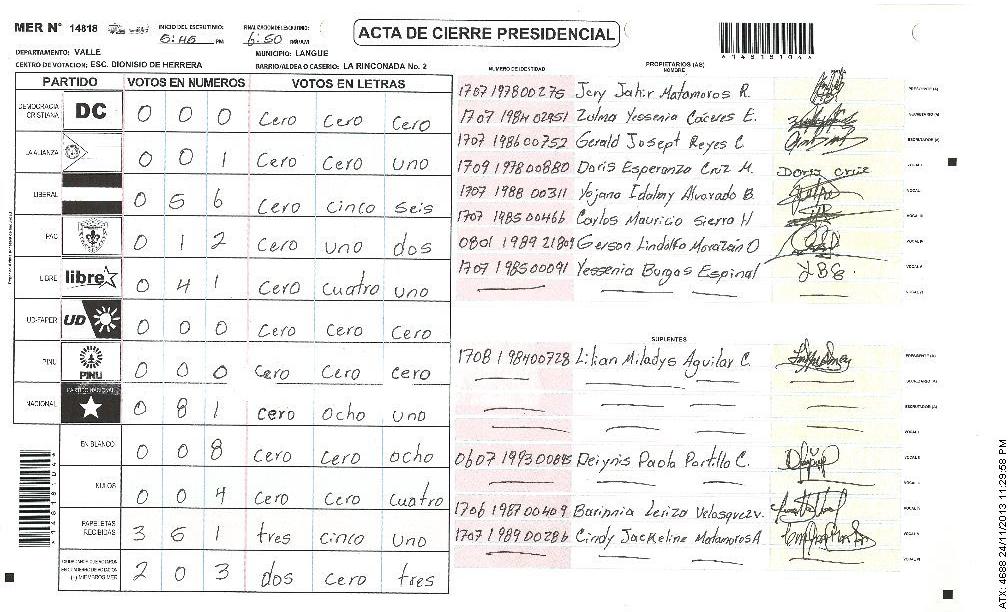 MER N° 14818 INICIO DEL ESCRUTINIO: 5:45 PM FINALIZACION DEL ESCRUTINIO: 6:50
ACTA DE CIERRE PRESIDENCIAL
*14818104*
DEPARTAMENTO: VALLE MUNICIPIO: LANGUE
CENTRO DE VOTACION: ESC. DIONISIO DE HERRERA BARRIO/ALDEA O CASERIO: LA RINCONADA No. 2
PARTIDO VOTOS EN NUMEROS VOTOS EN LETRAS
DEMOCRACIA CRISTIANA DC 0 0 0 Cero Cero Cero
LA ALIANZA 0 0 1 Cero Cero uno
LIBERAL 0 5 6 Cero Cinco Seis
PAC 0 1 2 Cero uno dos
LIBRE libre 0 4 1 Cero Cuatro uno
UD-FAPER UD 0 0 0 Cero Cero Cero
PINU PINU 0 0 0 Cero Cero cero
NACIONAL PARTIDO NACIONAL 0 8 1 cero ocho uno
EN BLANCO 0 0 8 Cero Cero ocho
NULOS 0 0 4 Cero Cero cuatro
PAPELETAS RECIBIDAS 3 5 1 tres cinco uno
(+) MIEMBROS MER 2 0 3 dos cero tres
*14818104*
NUMERO DE IDENTIDAD PROPIETARIOS (AS) NOMBRE
1707 197800275 Jery Jahir Matamoros R. PRESIDENTE (A)
1707 1984 02951 Zulma Yessenia Cáceres E. SECRETARIO (A)
1707 1986 00752 Gerald Josept Reyes C ESCRUTADOR (A)
1709 1978 00880 Doris Esperanza Cruz M. Doris Cruz VOCAL I
1707 1988 00311 Yojana Idalmy Alvarado B. VOCAL II
1707 1985 00466 Carlos Mauricio Sierra H VOCAL III
0801 1989 21809 Gerson Lindolfo Morazán O VOCAL IV
1707 1985 00091 Yessenia Burgos Espinal YBE. VOCAL V
VOCAL VI
SUPLENTES
1708 1984 00728 Lilian Miladys Aguilar C. PRESIDENTE (A)
SECRETARIO (A)
ESCRUTADOR (A)
VOCAL I
0607 1993 00845 Deiynis Paola Portillo C. VOCAL II
VOCAL III
1706 1987 00409 Barinnia Leriza Velasquez v. VOCAL IV
1707 1989 00286 Cindy Jackeline Matamoros A VOCAL V
VOCAL VI
ATX: 4688 24/11/2013 11:29:58 PM